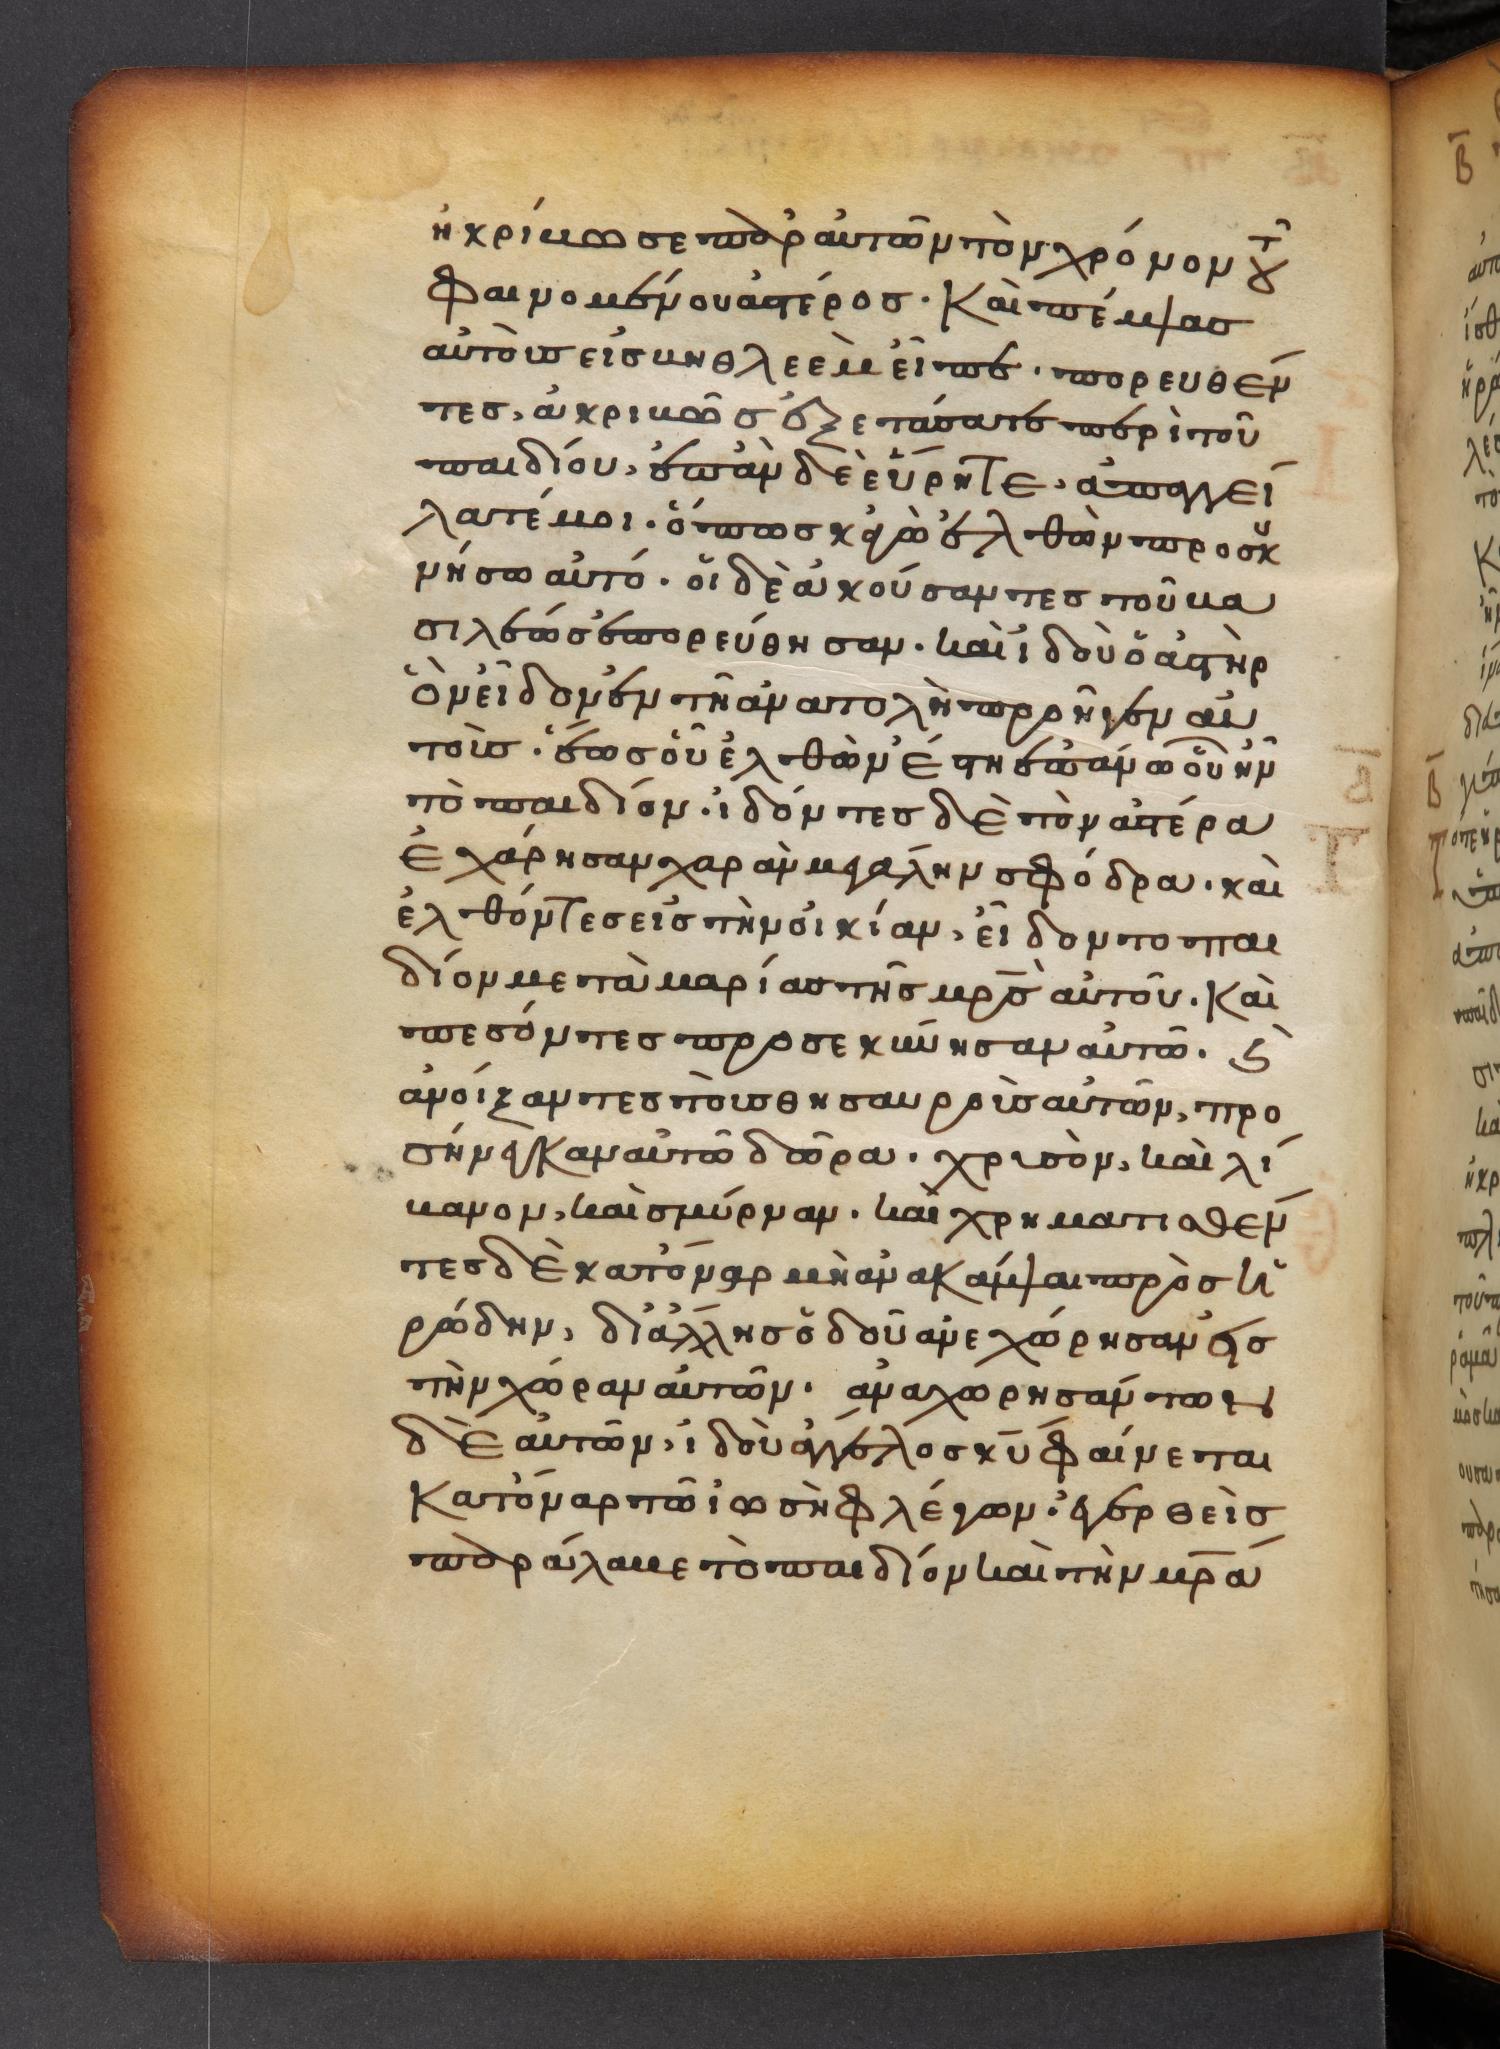 ἠκρίβωσε παρ' αὐτῶν τὸν χρόνον τοῦ
φαινομένου ἀστέρος. καὶ πέμψας
αὐτοὺς εἰς βηθλεὲμ εἶπε. πορευθέν
τες, ἀκριβῶς ἐξετάσατε περὶ τοῦ
παιδίου, ἐπὰν δὲ εὕρητε, ἀπαγγεί
λατέ μοι. ὅπως κἀγὼ ἐλθὼν προσκυ
νήσω αὐτό. οἱ δὲ ἀκούσαντες τοῦ βα
σιλέως ἐπορεύθησαν. καὶ ἰδοὺ ὁ ἀστὴρ
ὃν εἶδον ἐν τῆ ἀνατολὴ προῆγεν αὐ
τοὺς. ἕως οὗ ἐλθὼν ἔστη ἐπάνω οὗ ἦν
τὸ παιδίον. ἰδόντες δὲ τὸν ἀστέρα
ἐχάρησαν χαρὰν μεγάλην σφόδρα. καὶ
ἐλθόντες εἰς τὴν οἰκίαν, εἶδον το παι
δίον μετὰ μαρίας τῆς μρ̅ς αὐτοῦ. καὶ
πεσόντες προσεκύνησαν αὐτῶ. ϗ
ἀνοίξαντες τοὺς θησαυροὺς αὐτῶν, προ
σήνεγκαν αὐτῶ δῶρα. χρυσὸν, καὶ λί
βανον, καὶ σμύρναν. καὶ χρηματισθέν
τες δὲ κατ' όναρ μὴ ἀνακάμψαι πρὸς ἡ
ρώδην, δι' ἄλλης ὁδοῦ ἀνεχώρησαν εἰς
τὴν χώραν αὐτῶν. ἀναχωρησάντων
δὲ αὐτῶν, ἰδοὺ ἄγγελος κ̅υ̅ φαίνεται
κατ' όναρ τῶ ἰωσὴφ λέγων. ἐγερθεὶς
παράλαβε τὸ παιδίον καὶ τὴν μρ̅α